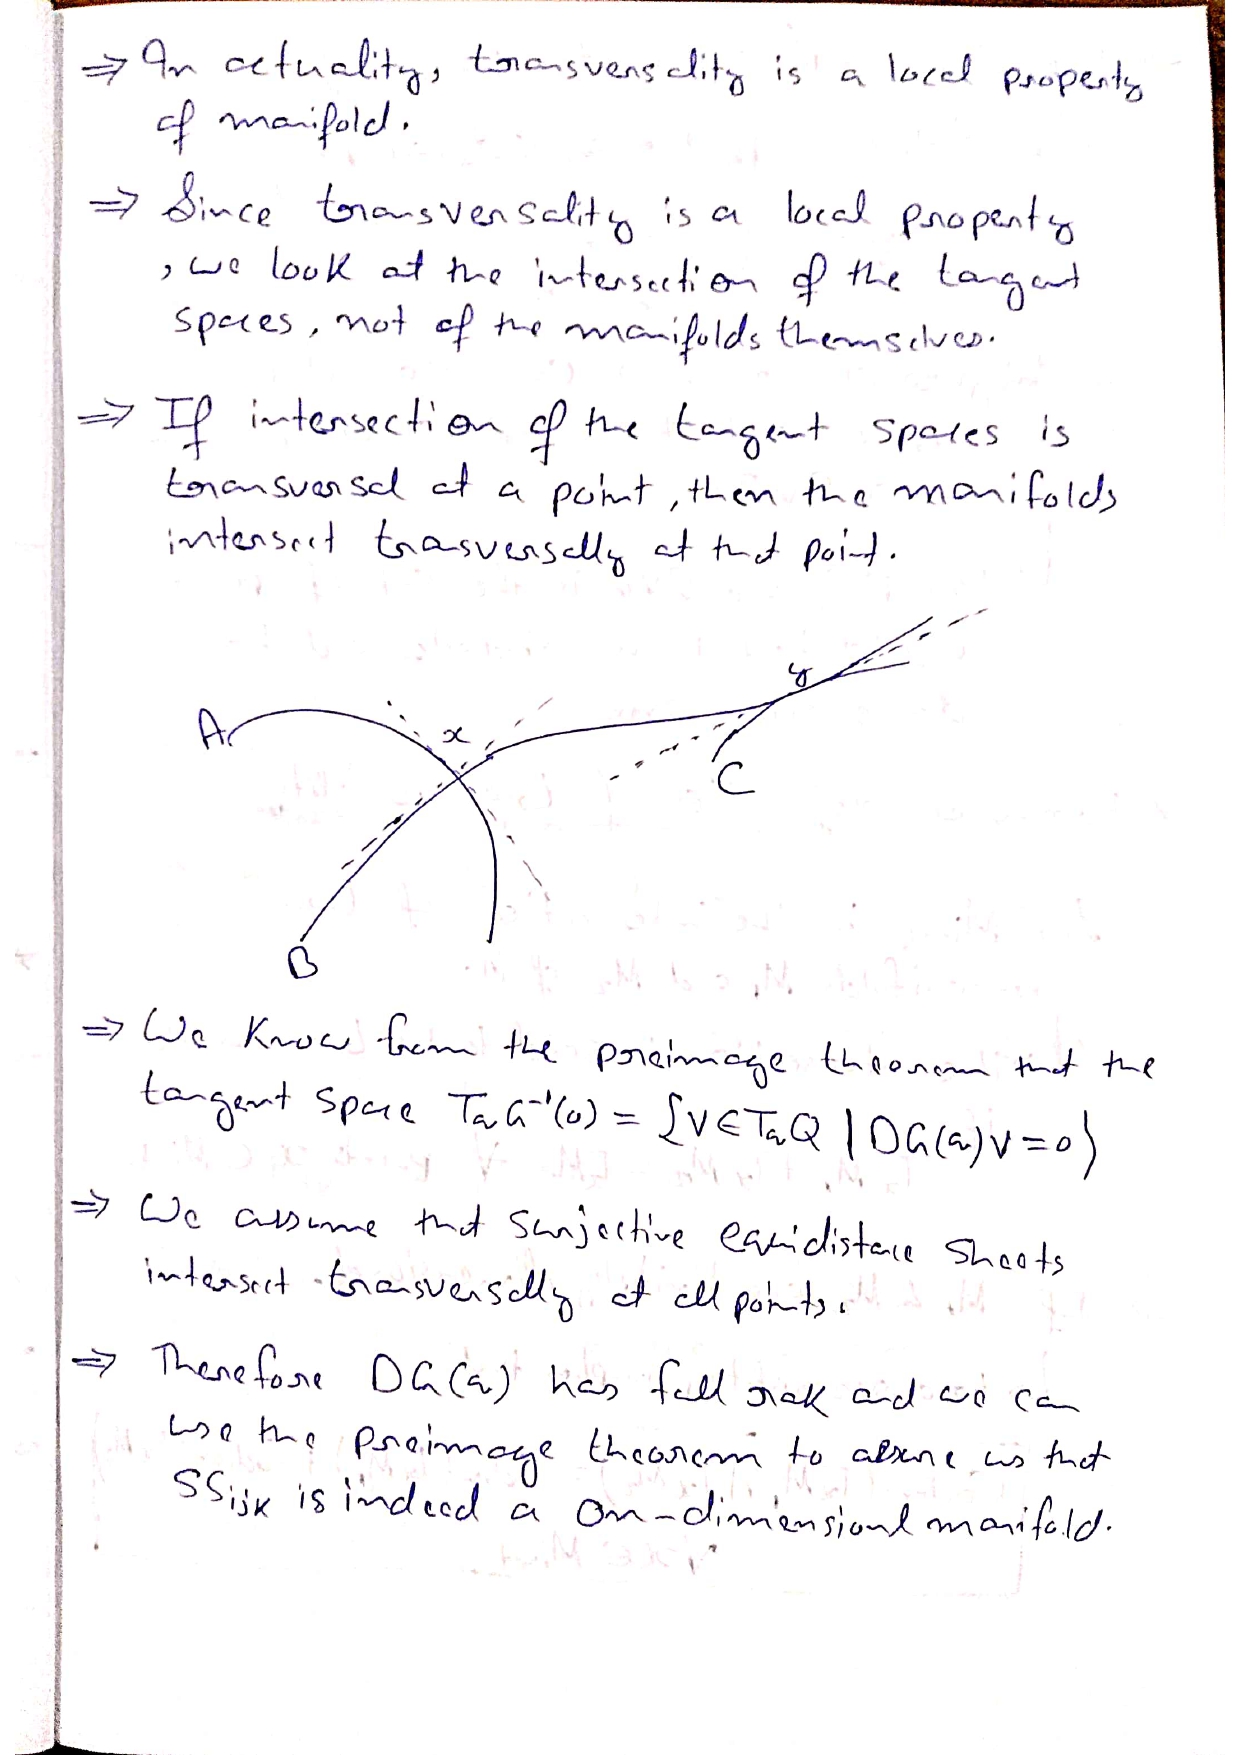 ⇒ In actuality, transversality is a local property
of manifold.
⇒ Since transversality is a local property
, we look at the intersection of the tangent
spaces, not of the manifolds themselves.
⇒ If intersection of the tangent spaces is
transversal at a point, then the manifolds
intersect trasversally at that point.
A
x
y
C
B
⇒ We know from the preimage theorem that the
tangent space TₐG⁻¹(0) = {V∈TₐQ | DG(a)V=0}
⇒ We assume that surjective equidistace sheets
intersect transversally at all points.
⇒ Therefore DG(a) has full rak and we can
use the preimage theorem to us that
SSijk is indeed a on-dimensional manifold.